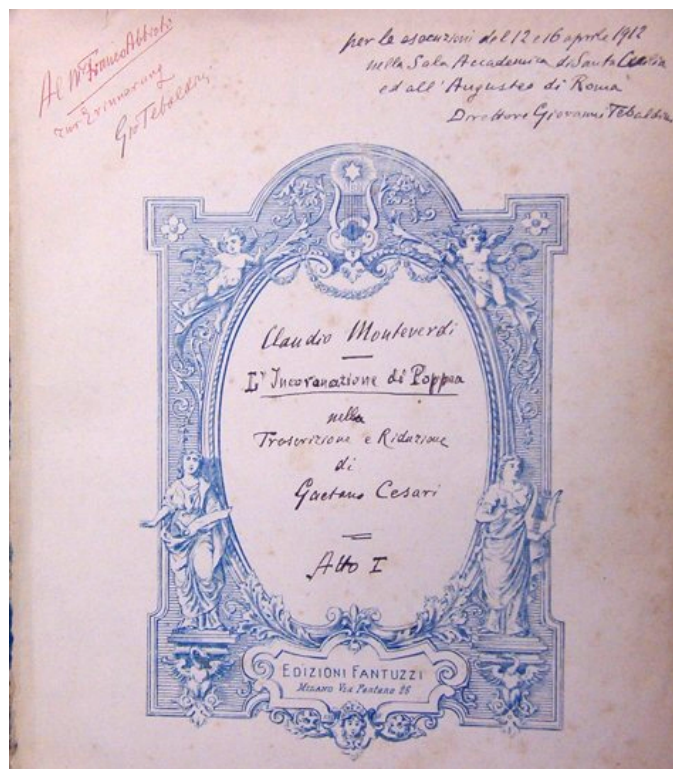 Al M° Franco Abbiato
zur Erinnerung
Gio Tebaldini
per le esecuzioni del 12 e 16 aprile 1912
nella Sala Accademica di Santa Cecilia
ed all'Augusteo di Roma
Direttore Giovanni Tebaldini
Claudio Monteverdi
L'Incoronazione di Poppea
nella
Trascrizione e Riduzione
di
Gaetano Cesari
Atto I
EDIZIONI FANTUZZI
MILANO Via Pantano 26